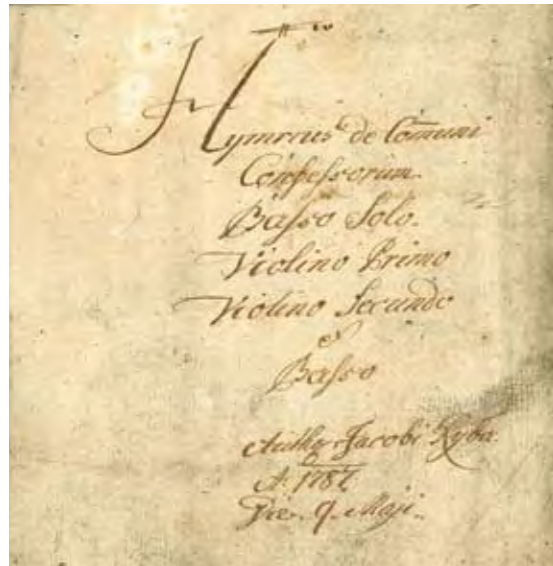 Hymnus de Com̄uni
Confessorum.
Basso Solo.
Violino Primo
Violino Secundo
e
Basso
Jacobi Ryba.
A. 1787
Die. 9. Maji.